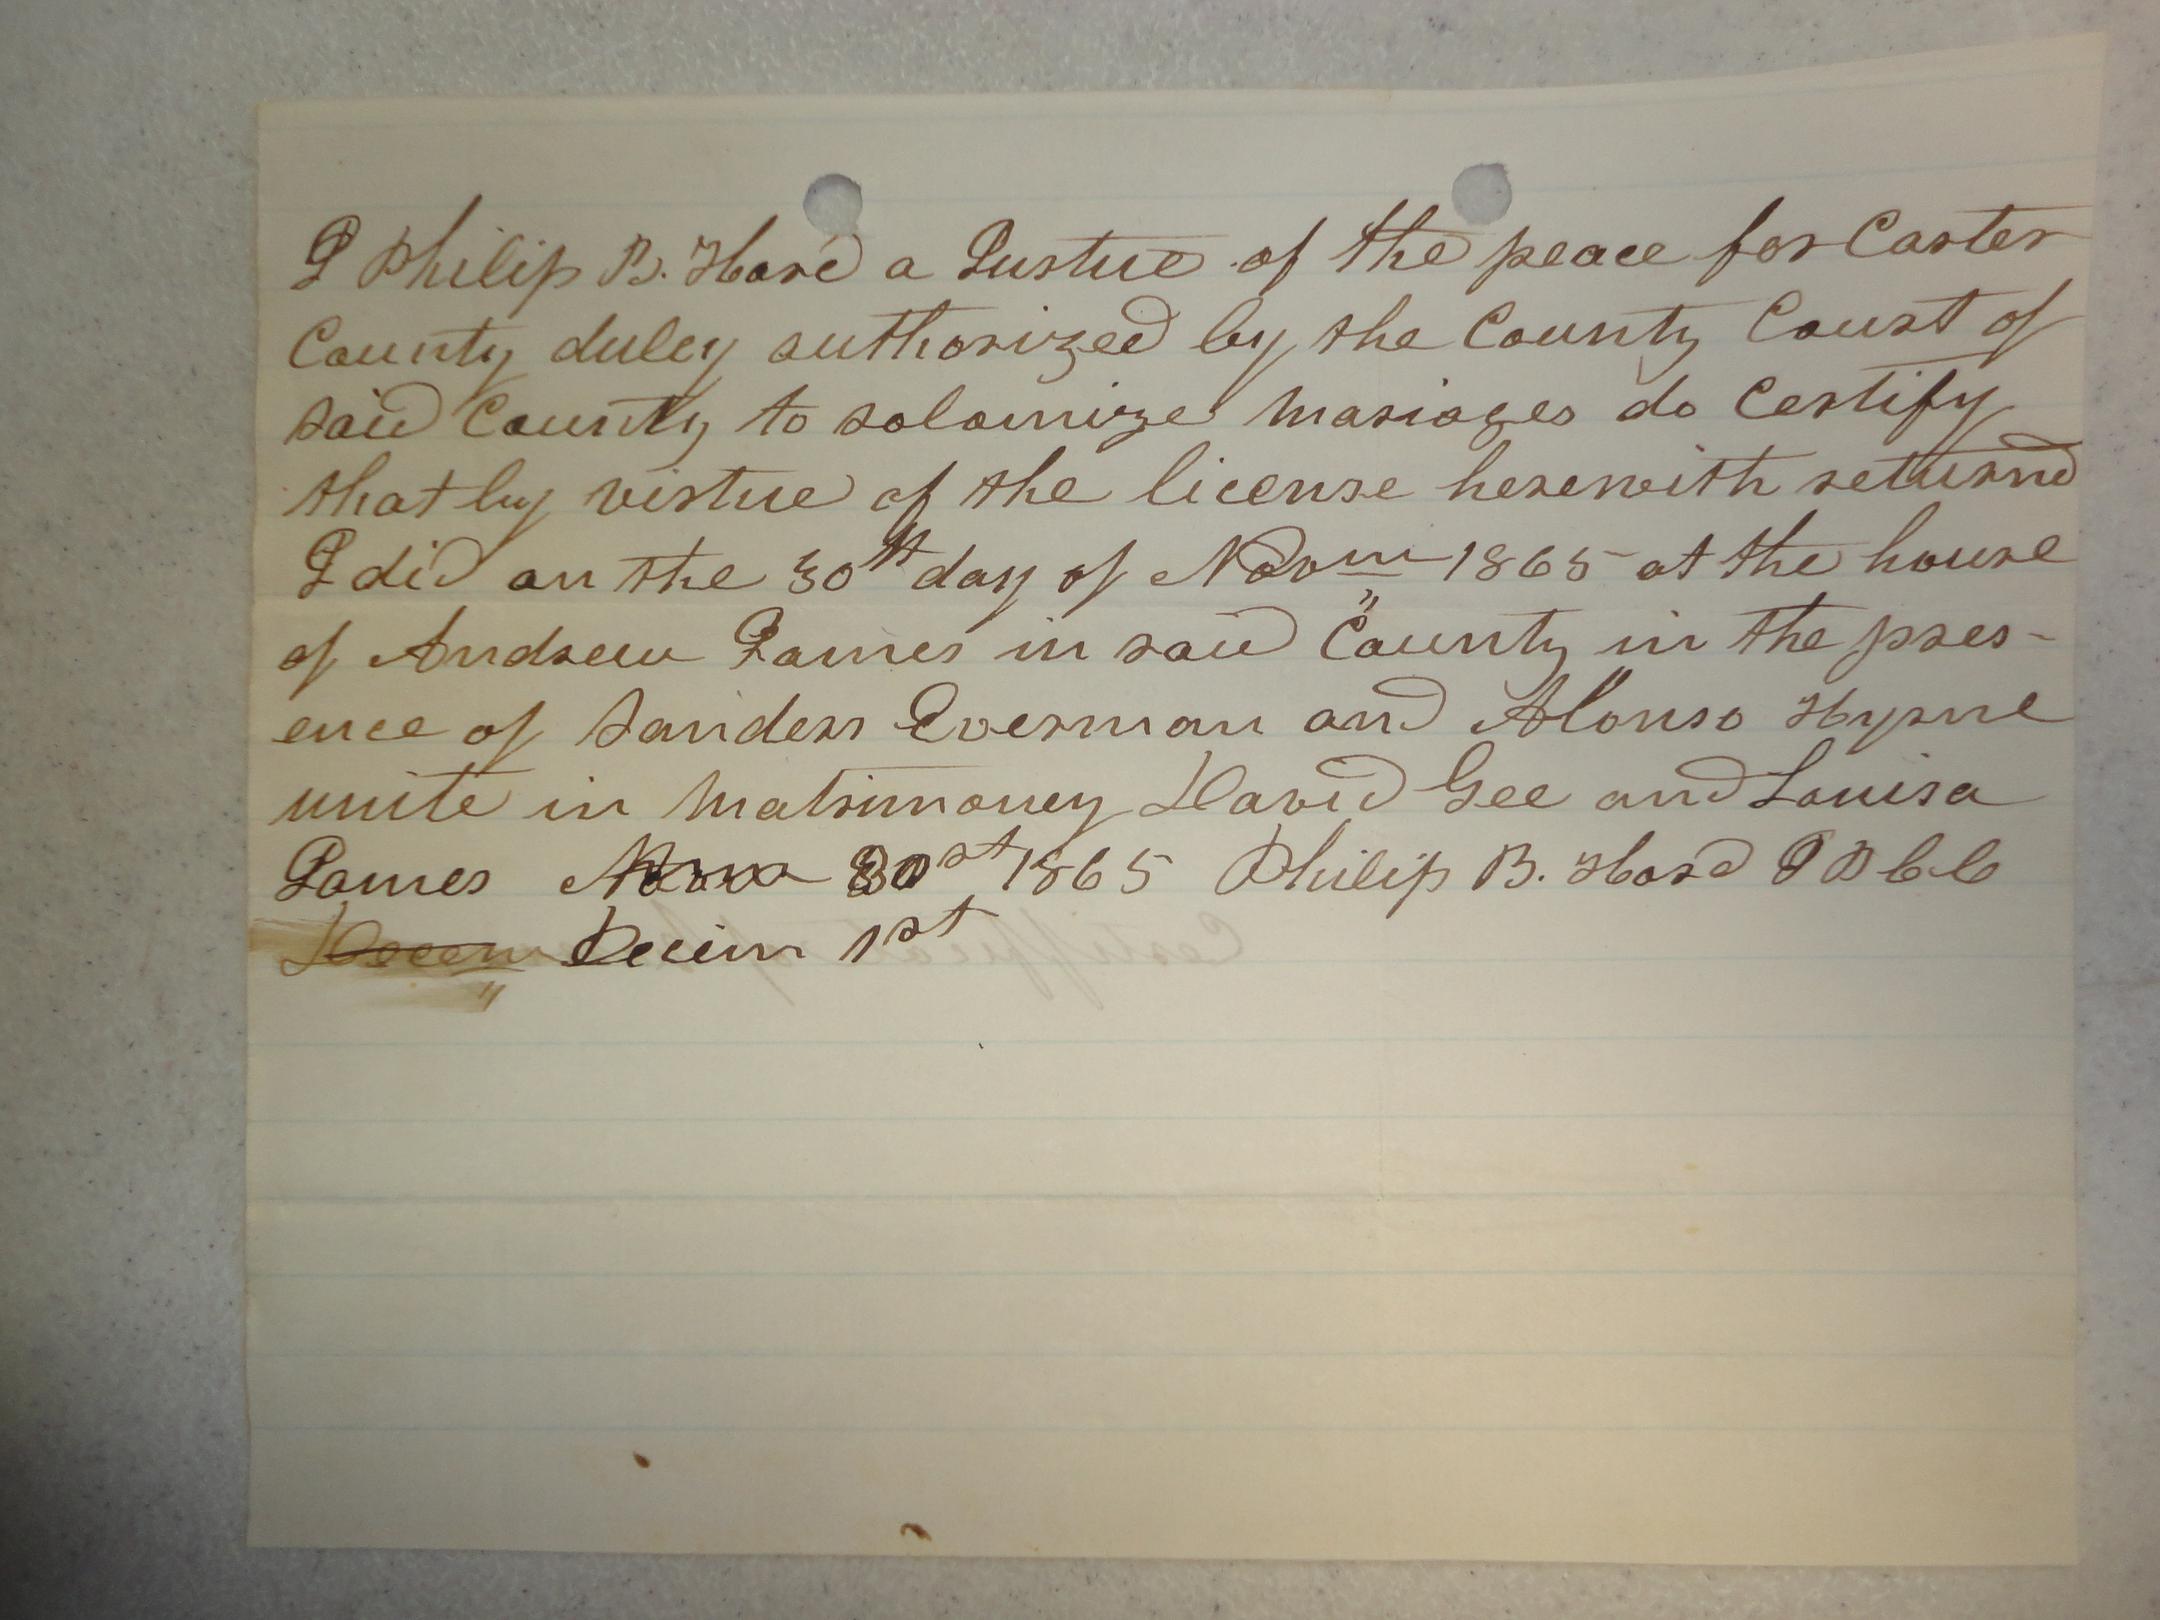 I Philip B. Hord a Justice of the peace for Carter
County duley authorized by the County Court of
said County to solomize mariages do Certify
that by virtue of the license herewith returnd
I did on the 30th day of Novm 1865 at the house
of Andrew James in said County in the pres-
ence of Sanders Everman and Alonso Hyrne
unite in Matrimoney David Gee and Louisa
James 1865 Philip B. Hord J P C C
Decem Decim 1st